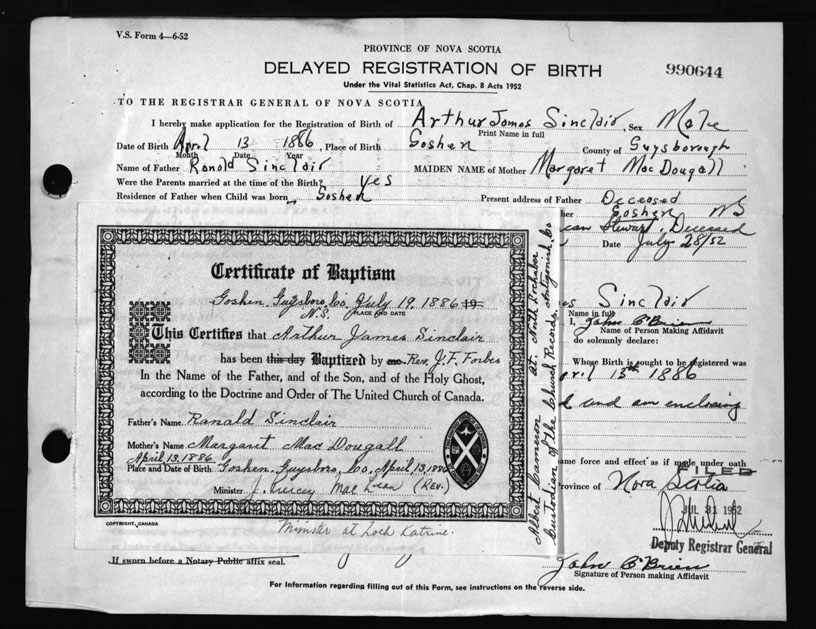 V.S. Form 4—6-52
PROVINCE OF NOVA SCOTIA
DELAYED REGISTRATION OF BIRTH
990644
Under the Vital Statistics Act, Chap. 8 Acts 1952
TO THE REGISTRAR GENERAL OF NOVA SCOTIA
I hereby make application for the Registration of Birth of Arthur James Sinclair, Sex Male
Print Name in full
Date of Birth April 13 1886, Place of Birth Goshen County of Guysborough
Month Date Year
Name of Father Ronald Sinclair MAIDEN NAME of Mother Margaret MacDougall
Were the Parents married at the time of the Birth? yes
Residence of Father when Child was born, Goshen Present address of Father Deceased
her Goshen NS
ean Steward, Deceased
Date July 28/52
Certificate of Baptism
Goshen, Guysboro, Co. July 19, 1886 19
N.S. PLACE AND DATE
This Certifies that Arthur James Sinclair
has been this day Baptized by me Rev. J. F. Forbes
In the Name of the Father, and of the Son, and of the Holy Ghost,
according to the Doctrine and Order of The United Church of Canada.
Father's Name Ranald Sinclair
Mother's Name Margaret MacDougall
April 13, 1886
Place and Date of Birth Goshen, Guysboro, Co. April, 13, 1886
Minister J. MacLean (Rev.)
COPYRIGHT, CANADA
Minister at Loch Katrine.
Albert Cameron at North Lochaber
Custodian of the Church Records, Antigonish, Co
es Sinclair
Name in full
I, John O'Brien
Name of Person Making Affidavit
do solemnly declare:
Whose Birth is sought to be registered was
pril 13th 1886
d and am enclosing
ame force and effect as if made under oath
FILED
Province of Nova Scotia
JUL 31 1952
Deputy Registrar General
If sworn before a Notary Public affix seal.
John O'Brien
Signature of Person making Affidavit
For Information regarding filling out of this Form, see instructions on the reverse side.